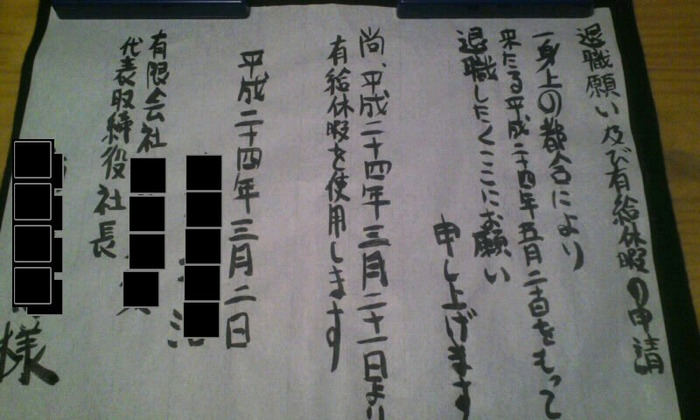 退職願い及び有給休暇の申請
一身上の都合により
来たる平成二十四年五月二十日をもって
退職したくここにお願い
申し上げます
尚、平成二十四年三月二十一日より
有給休暇を使用します
平成二十四年三月二日
有限会社
代表取締役社長
様